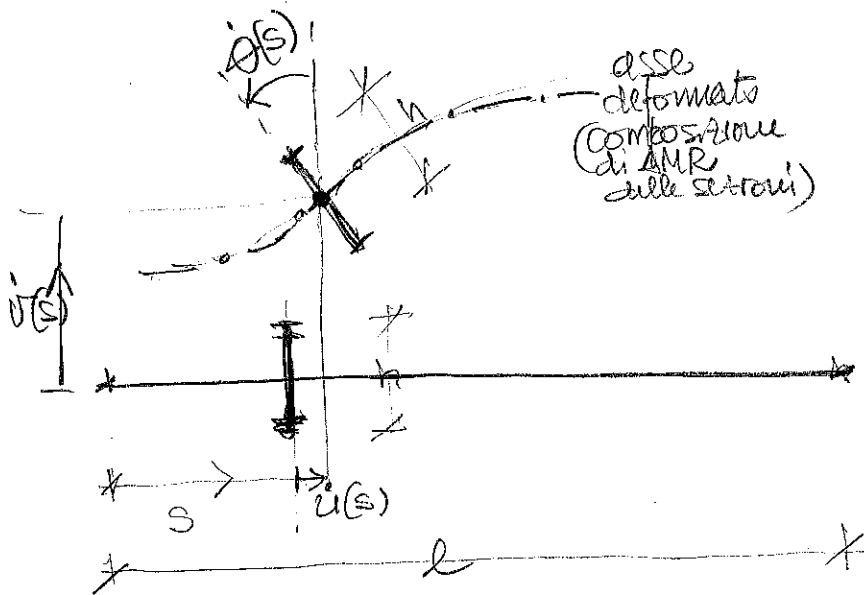 θ̇(s)
h
asse
deformato
(composizione
di AMR
delle sezioni)
v̇(s)
h
s
u̇(s)
l